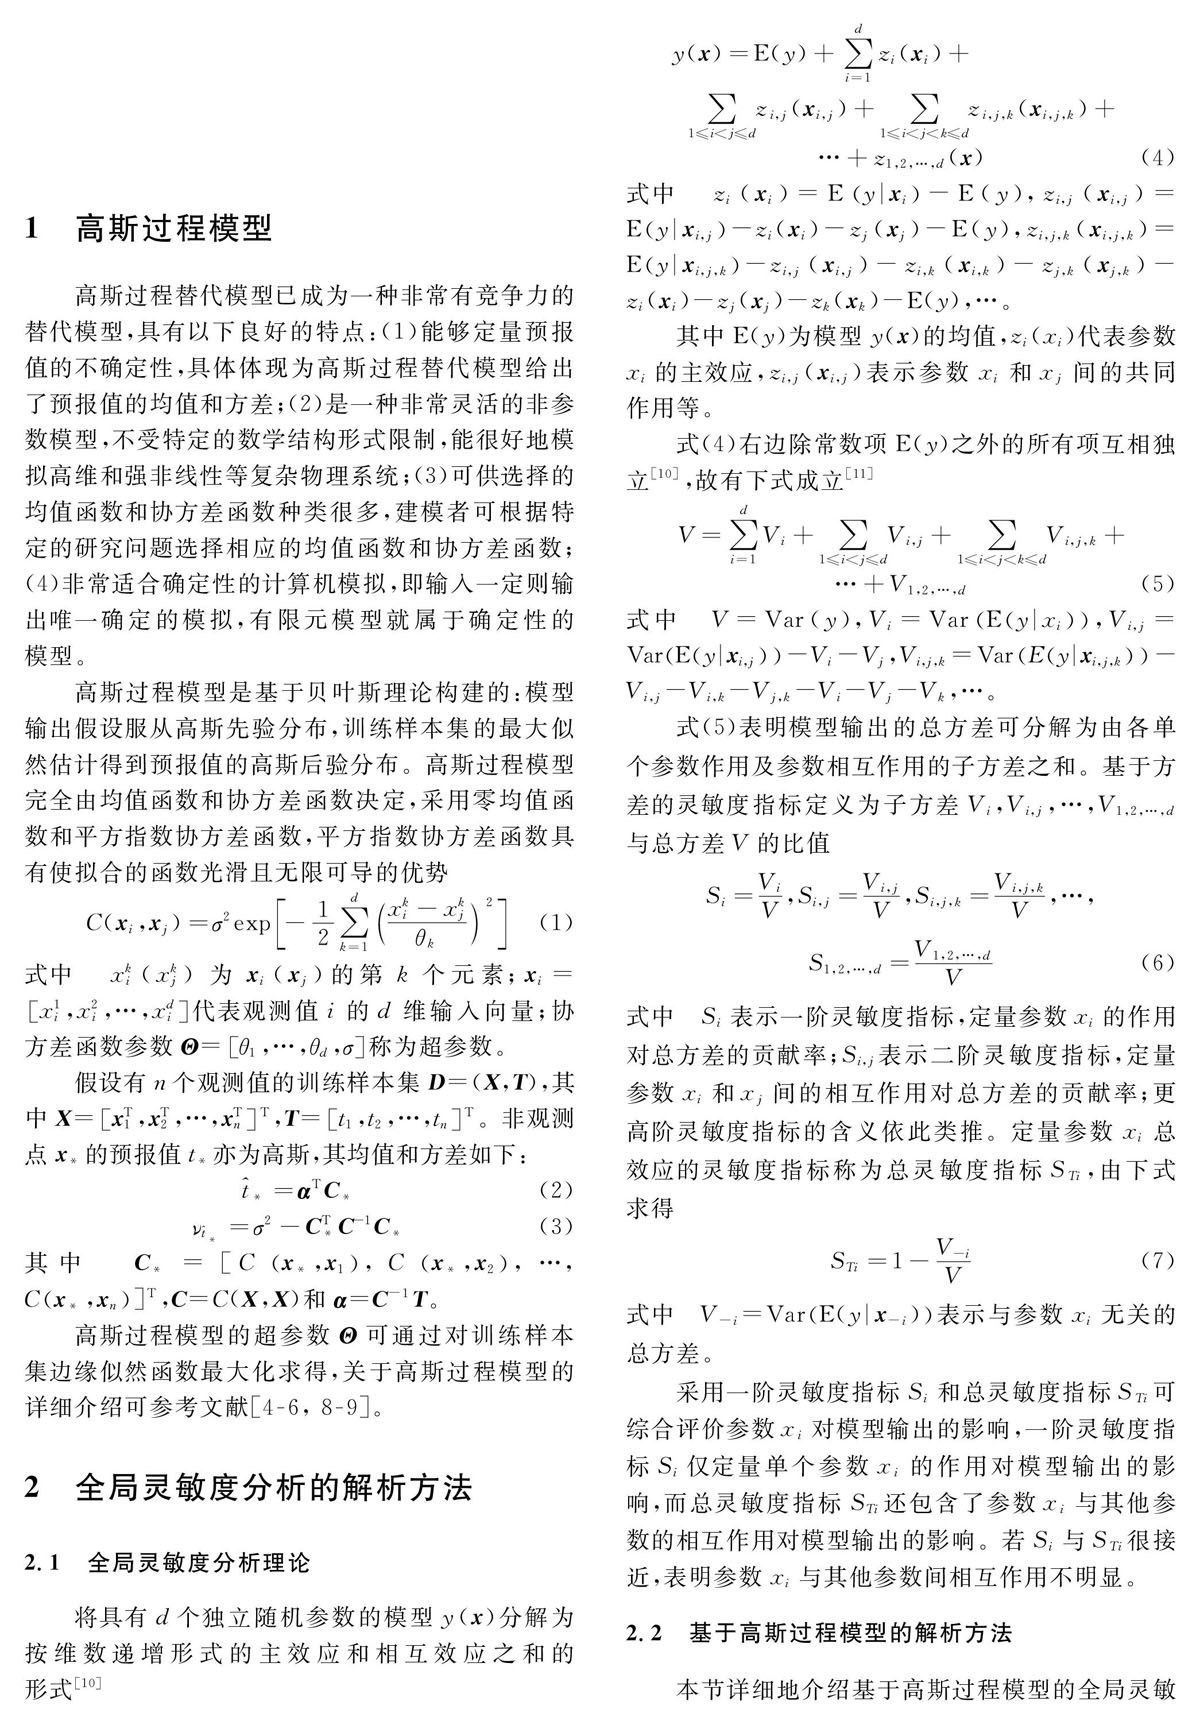 1 高斯过程模型
高斯过程替代模型已成为一种非常有竞争力的
替代模型,具有以下良好的特点:(1)能够定量预报
值的不确定性,具体体现为高斯过程替代模型给出
了预报值的均值和方差;(2)是一种非常灵活的非参
数模型,不受特定的数学结构形式限制,能很好地模
拟高维和强非线性等复杂物理系统;(3)可供选择的
均值函数和协方差函数种类很多,建模者可根据特
定的研究问题选择相应的均值函数和协方差函数;
(4)非常适合确定性的计算机模拟,即输入一定则输
出唯一确定的模拟,有限元模型就属于确定性的
模型。
高斯过程模型是基于贝叶斯理论构建的:模型
输出假设服从高斯先验分布,训练样本集的最大似
然估计得到预报值的高斯后验分布。高斯过程模型
完全由均值函数和协方差函数决定,采用零均值函
数和平方指数协方差函数,平方指数协方差函数具
有使拟合的函数光滑且无限可导的优势
C(x_i,x_j)=σ^2 exp[-1/2 ∑_{k=1}^{d} ((x_i^k-x_j^k)/θ_k)^2] (1)
式中 x_i^k(x_j^k)为 x_i(x_j)的第 k 个元素;x_i=
[x_i^1,x_i^2,…,x_i^d]代表观测值 i 的 d 维输入向量;协
方差函数参数 Θ=[θ_1,…,θ_d,σ]称为超参数。
假设有 n 个观测值的训练样本集 D=(X,T),其
中 X=[x_1^T,x_2^T,…,x_n^T]^T,T=[t_1,t_2,…,t_n]^T。非观测
点 x_* 的预报值 t_* 亦为高斯,其均值和方差如下:
t̂_*=α^T C_* (2)
ν_{t̂_*}=σ^2-C_*^T C^{-1} C_* (3)
其中 C_*=[C(x_*,x_1),C(x_*,x_2),…,
C(x_*,x_n)]^T,C=C(X,X)和 α=C^{-1}T。
高斯过程模型的超参数 Θ 可通过对训练样本
集边缘似然函数最大化求得,关于高斯过程模型的
详细介绍可参考文献[4-6, 8-9]。
2 全局灵敏度分析的解析方法
2.1 全局灵敏度分析理论
将具有 d 个独立随机参数的模型 y(x)分解为
按维数递增形式的主效应和相互效应之和的
形式[10]
y(x)=E(y)+∑_{i=1}^{d} z_i(x_i)+
∑_{1≤i<j≤d} z_{i,j}(x_{i,j})+∑_{1≤i<j<k≤d} z_{i,j,k}(x_{i,j,k})+
…+z_{1,2,…,d}(x) (4)
式中 z_i(x_i)=E(y|x_i)-E(y),z_{i,j}(x_{i,j})=
E(y|x_{i,j})-z_i(x_i)-z_j(x_j)-E(y),z_{i,j,k}(x_{i,j,k})=
E(y|x_{i,j,k})-z_{i,j}(x_{i,j})-z_{i,k}(x_{i,k})-z_{j,k}(x_{j,k})-
z_i(x_i)-z_j(x_j)-z_k(x_k)-E(y),…。
其中 E(y)为模型 y(x)的均值,z_i(x_i)代表参数
x_i 的主效应,z_{i,j}(x_{i,j})表示参数 x_i 和 x_j 间的共同
作用等。
式(4)右边除常数项 E(y)之外的所有项互相独
立[10],故有下式成立[11]
V=∑_{i=1}^{d} V_i+∑_{1≤i<j≤d} V_{i,j}+∑_{1≤i<j<k≤d} V_{i,j,k}+
…+V_{1,2,…,d} (5)
式中 V=Var(y),V_i=Var(E(y|x_i)),V_{i,j}=
Var(E(y|x_{i,j}))-V_i-V_j,V_{i,j,k}=Var(E(y|x_{i,j,k}))-
V_{i,j}-V_{i,k}-V_{j,k}-V_i-V_j-V_k,…。
式(5)表明模型输出的总方差可分解为由各单
个参数作用及参数相互作用的子方差之和。基于方
差的灵敏度指标定义为子方差 V_i,V_{i,j},…,V_{1,2,…,d}
与总方差 V 的比值
S_i=V_i/V,S_{i,j}=V_{i,j}/V,S_{i,j,k}=V_{i,j,k}/V,…,
S_{1,2,…,d}=V_{1,2,…,d}/V (6)
式中 S_i 表示一阶灵敏度指标,定量参数 x_i 的作用
对总方差的贡献率;S_{i,j}表示二阶灵敏度指标,定量
参数 x_i 和 x_j 间的相互作用对总方差的贡献率;更
高阶灵敏度指标的含义依此类推。定量参数 x_i 总
效应的灵敏度指标称为总灵敏度指标 S_{Ti},由下式
求得
S_{Ti}=1-V_{-i}/V (7)
式中 V_{-i}=Var(E(y|x_{-i}))表示与参数 x_i 无关的
总方差。
采用一阶灵敏度指标 S_i 和总灵敏度指标 S_{Ti}可
综合评价参数 x_i 对模型输出的影响,一阶灵敏度指
标 S_i 仅定量单个参数 x_i 的作用对模型输出的影
响,而总灵敏度指标 S_{Ti}还包含了参数 x_i 与其他参
数的相互作用对模型输出的影响。若 S_i 与 S_{Ti}很接
近,表明参数 x_i 与其他参数间相互作用不明显。
2.2 基于高斯过程模型的解析方法
本节详细地介绍基于高斯过程模型的全局灵敏